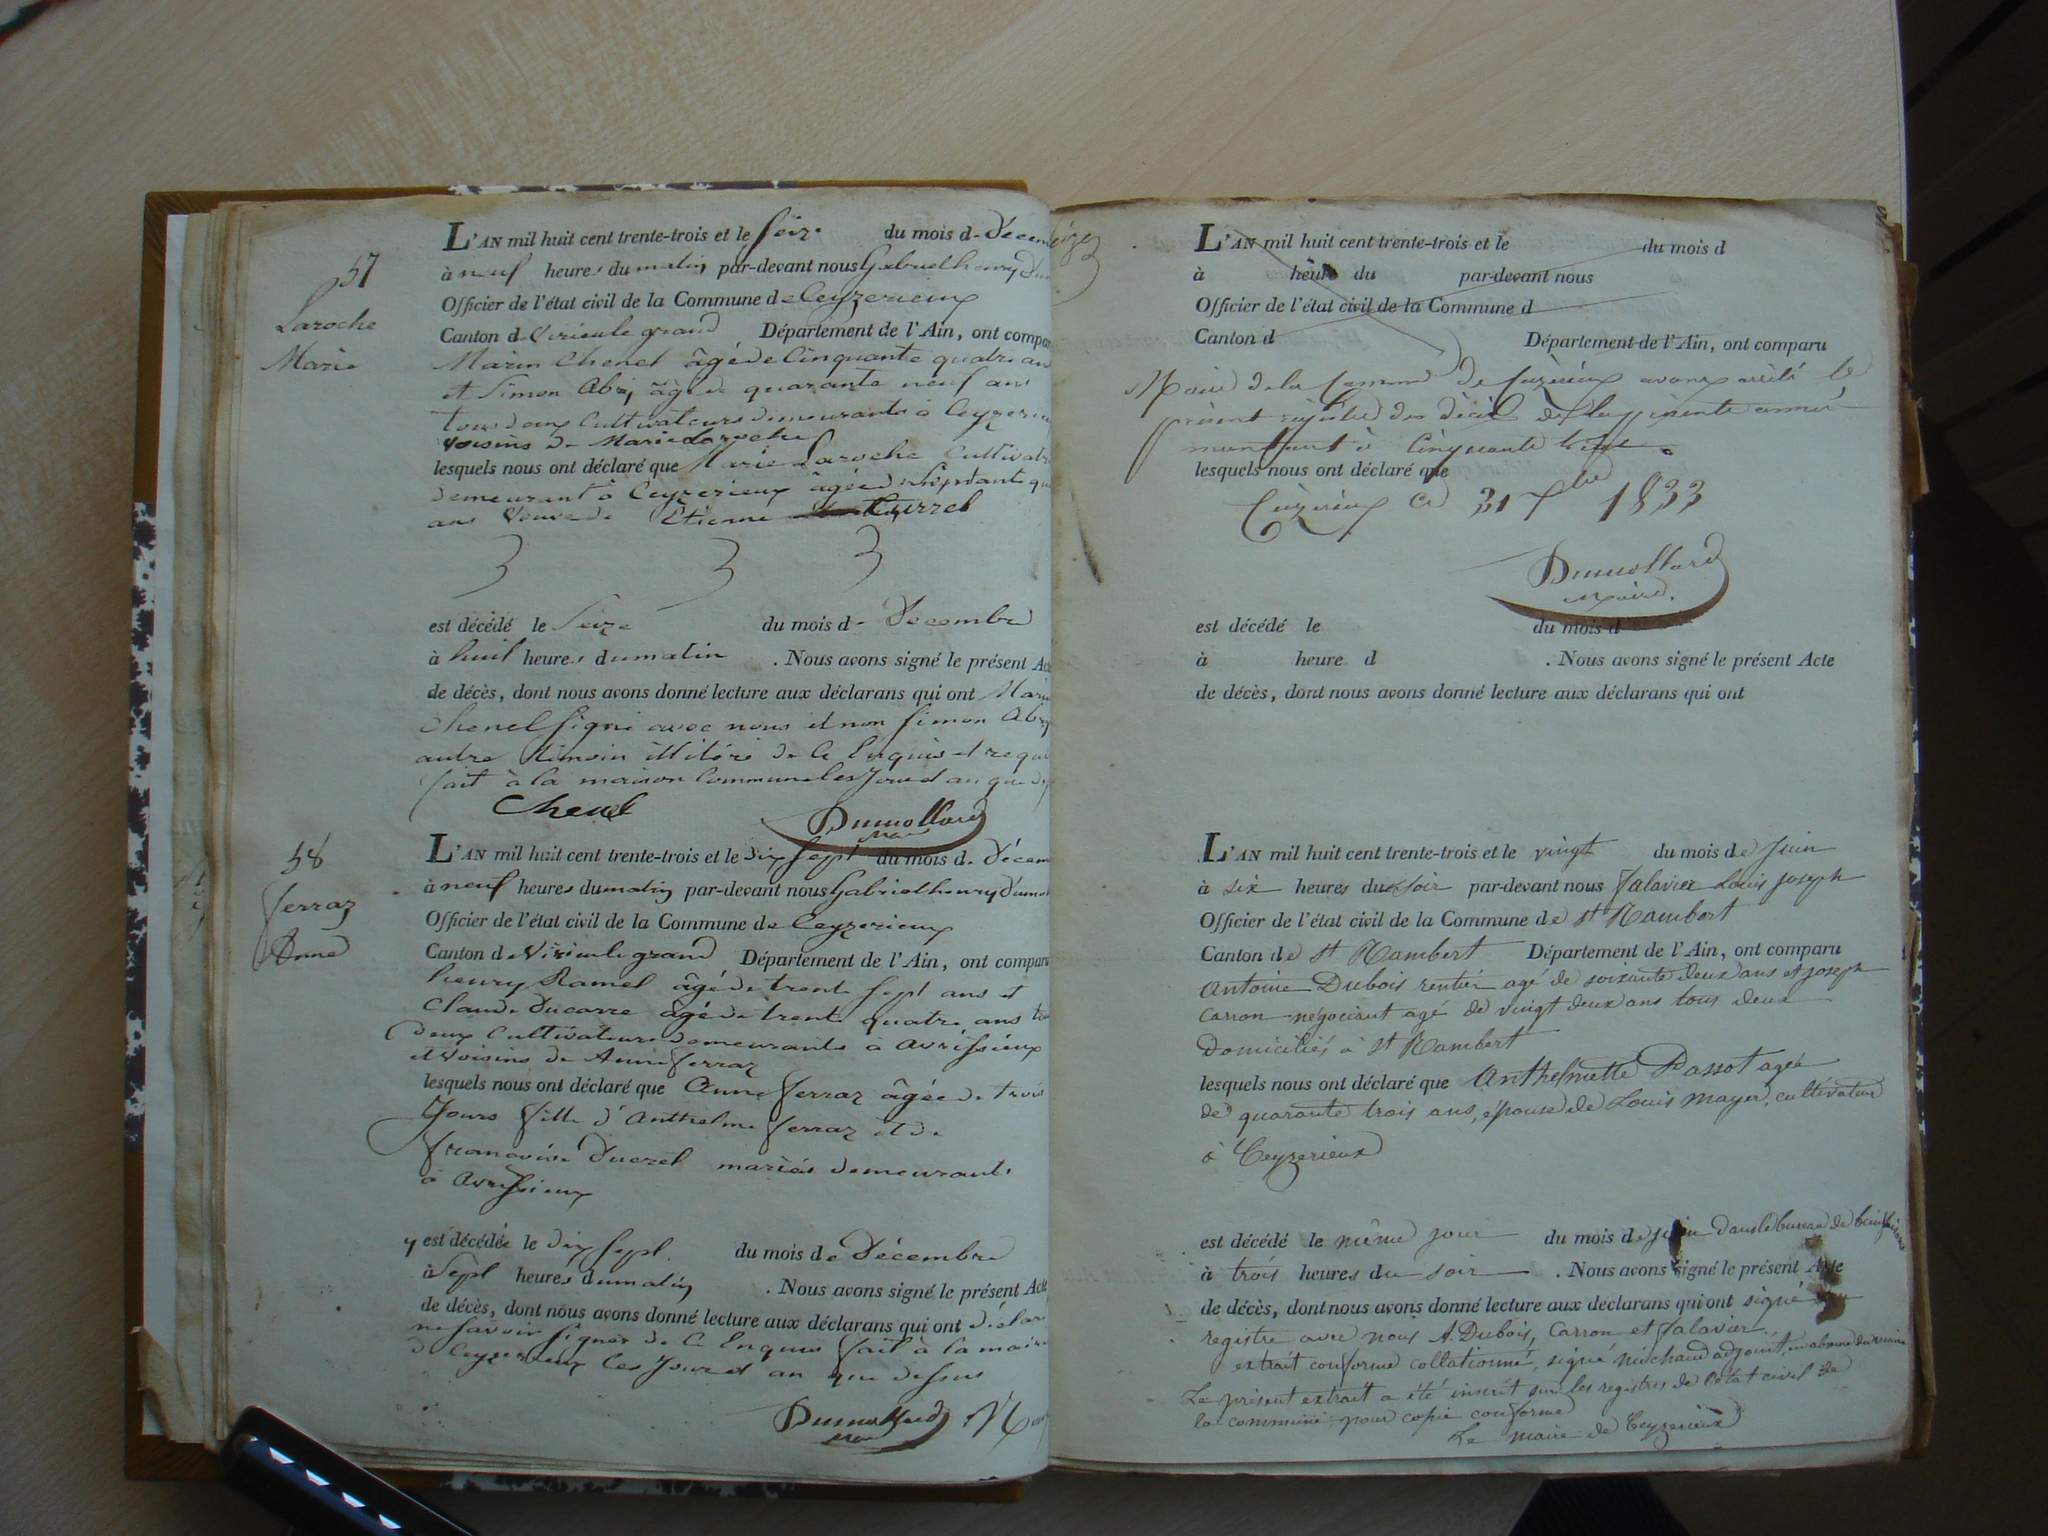 57
Laroche
Marie
L'AN mil huit cent trente-trois et le seize du mois de Décem
à neuf heures du matin par-devant nous Gabriel henry Du
Officier de l'état civil de la Commune de Ceyzerieux
Canton de Virieu le grand Département de l'Ain, ont compar
Marin Chenel âgé de Cinquante quatre ans
et Simon Abry âgé de quarante neuf ans
tous deux Cultivateurs demeurants à Ceyzerieu
voisins de Marie Laroche
lesquels nous ont déclaré que Marie Laroche Cultivatr
demeurant à Ceyzerieux âgée de septante qu
ans Veuve de Etienne Currel
est décédé le Seize du mois de Décembre
à huit heures du matin . Nous avons signé le présent Acte
de décès, dont nous avons donné lecture aux déclarans qui ont Marin
Chenel signé avec nous et non Simon Abry
autre témoin illitéré de ce Enquis et requi
fait à la maison Commune les Jour et an que d
Chenel Dumollard
58
ferraz
Anne
L'AN mil huit cent trente-trois et le dix sept du mois de Décem
à neuf heures du matin par-devant nous Gabriel henry Dumol
Officier de l'état civil de la Commune de Ceyzerieux
Canton de Virieu le grand Département de l'Ain, ont comparu
henry Ramel âgé de trente sept ans et
Claude Ducarre âgé de trente quatre ans to
deux Cultivateurs demeurants à Avrissieux
et voisins de Anne ferraz
lesquels nous ont déclaré que Anne ferraz âgée de trois
Jours fille d'Anthelme ferraz et de
françoise Ducrel mariés demeurants
à Avrissieux
y est décédée le dix sept du mois de Décembre
à Sept heures du matin . Nous avons signé le présent Acte
de décès, dont nous avons donné lecture aux déclarans qui ont déclar
ne savoir signer de ce Enquis fait à la mairie
de Ceyzerieux les Jour et an que dessus
Dumollard
L'AN mil huit cent trente-trois et le du mois d
à heure du par-devant nous
Officier de l'état civil de la Commune d
Canton d Département de l'Ain, ont comparu
Maire de la Commune de Ceyzerieux avons arrêté le
présent régistre des décès de la présente année
montant à Cinquante huit
lesquels nous ont déclaré que
Ceyzerieux ce 31 Xbre 1833
Dumollard
maire
est décédé le du mois d
à heure d . Nous avons signé le présent Acte
de décès, dont nous avons donné lecture aux déclarans qui ont
L'AN mil huit cent trente-trois et le vingt du mois de Juin
à six heures du soir par-devant nous falavier Louis joseph
Officier de l'état civil de la Commune de st Rambert
Canton de st Rambert Département de l'Ain, ont comparu
Antoine Dubois rentier agé de soixante deux ans et joseph
Carron négociant agé de vingt deux ans tous deux
Domiciliés à st Rambert
lesquels nous ont déclaré que Anthelmette Passot agée
de quarante trois ans, épouse de Louis Mayer, cultivateur
à Ceyzerieux
est décédé le même jour du mois de juin dans le bureau de bienfaisance
à trois heures du soir . Nous avons signé le présent Acte
de décès, dont nous avons donné lecture aux déclarans qui ont signé au
registre avec nous A. Dubois, Carron et falavier
extrait conforme collationné, signé michaud adjoint, en absence du maire
Le présent extrait a été inscrit sur les registres de l'état civil de
la commune pour copie conforme
Le maire de Ceyzerieux